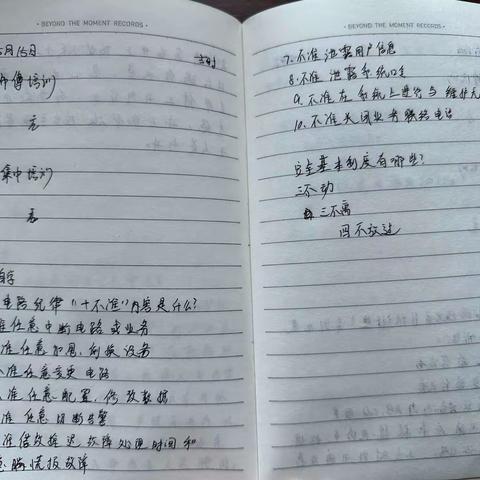 BEYOND THE MOMENT RECORDS
5月15日
师傅培训
无
集中培训
无
自学
电路纪律"十不准"内容是什么?
准任意中断电路或业务
准任意加甩、倒换设备
不准任意变更电路
不准任意配置、修改数据
准任意切断告警
准借故推迟故障处理时间和
隐瞒谎报故障
BEYOND THE MOMENT RECORDS
7.不准泄露用户信息
8.不准泄露系统口令
9.不准在系统上进行与维护无
10.不准关闭业务联络电话
安全基本制度有哪些?
三不动
三不离
四不放过